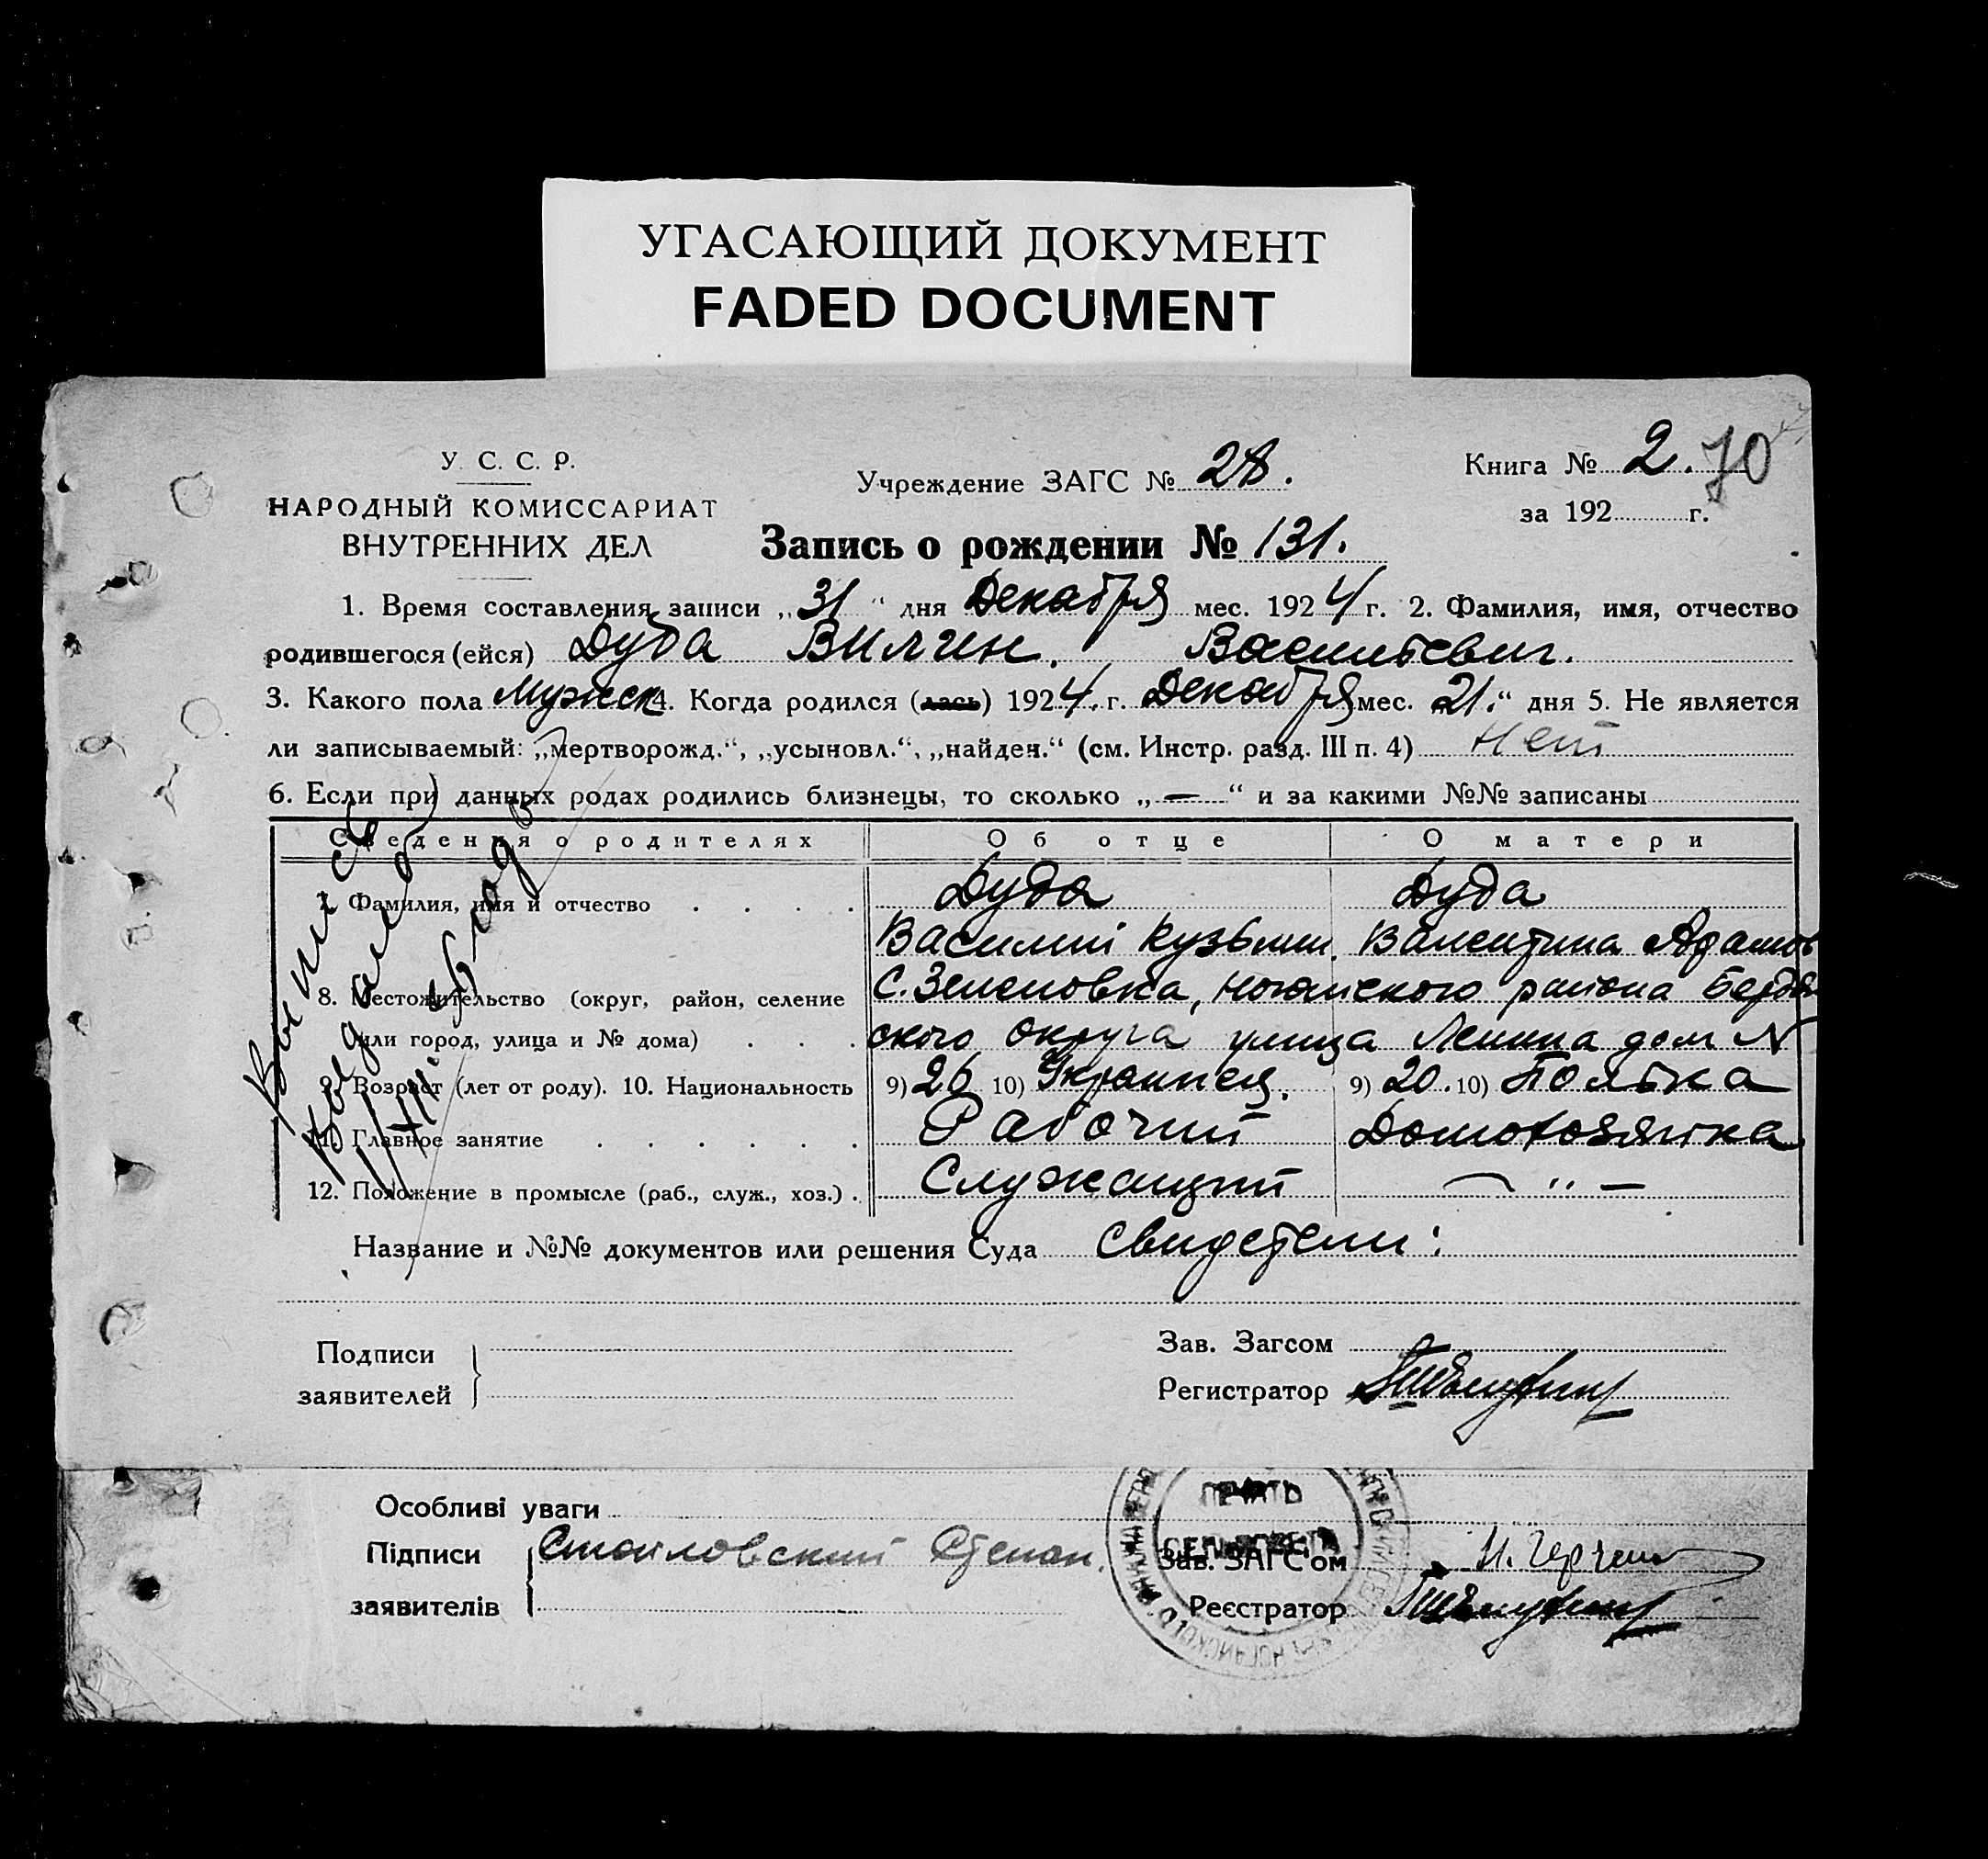 УГАСАЮЩИЙ ДОКУМЕНТ
FADED DOCUMENT
У. С. С. Р.
НАРОДНЫЙ КОМИССАРИАТ
ВНУТРЕННИХ ДЕЛ
Учреждение ЗАГС № 28.
Книга № 2. 70
за 192 г.
Запись о рождении № 131.
1. Время составления записи „31“ дня Декабря мес. 1924 г. 2. Фамилия, имя, отчество
родившегося (ейся) Дуда Вилчин. Васильевич.
3. Какого пола Мужск 4. Когда родился (лась) 1924. г. Декабря мес. 21.“ дня 5. Не является
ли записываемый: „мертворожд.“, „усыновл.“, „найден.“ (см. Инстр. разд. III п. 4) Нет
6. Если при данных родах родились близнецы, то сколько „—“ и за какими №№ записаны
Сведения о родителях Об отце О матери
7. Фамилия, имя и отчество Дуда Дуда
Василий Кузьмин. Валентина Адамов
8. Местожительство (округ, район, селение С. Зеленовка, Ногайского района Бердян
или город, улица и № дома) ского округа улица Ленина дом N
9. Возраст (лет от роду). 10. Национальность 9) 26 10) Украинец. 9) 20. 10) Полька
11. Главное занятие Рабочий Домохозяйка
12. Положение в промысле (раб., служ., хоз.) Служащий — „ —
Название и №№ документов или решения Суда Свидетели:
Подписи
заявителей
Зав. Загсом
Регистратор
Особливі уваги
Підписи Смоиловский Степан.
заявителів
ПЕЧАТЬ
СЕЛЬСОВЕТА
Зав. ЗАГС'ом
Реєстратор